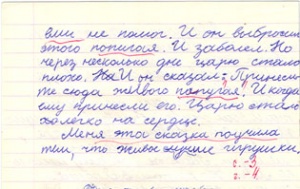 ему не помог. И он выбросил
этого попигая. И забалел. Но
через несколько дне царю стало
плохо. И он сказал: Принеси-
те сюда живого попугая". И когда
ему принесли его. Царю стало
легко на сердце.
Меня эта сказка поучила
тем, что живое лучше игрушки.
с. -3
г. -4